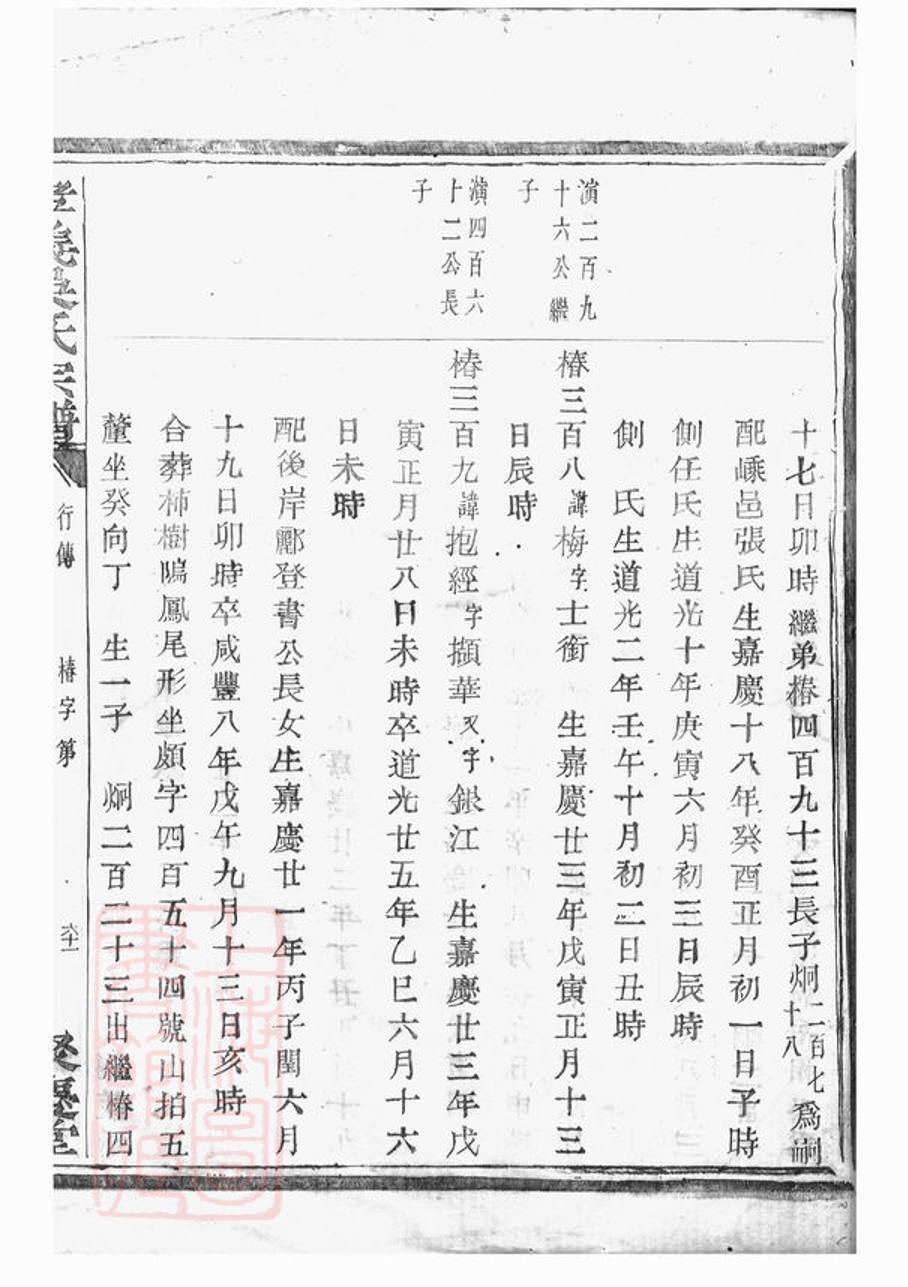 十七日卯時繼弟椿四百九十三長子炯二百七十八為嗣
配嵊邑張氏生嘉慶十八年癸酉正月初一日子時
側任氏生道光十年庚寅六月初三日辰時
側　氏生道光二年壬午十月初二日丑時
演二百九十六公繼子
椿三百八諱梅字士銜　生嘉慶廿三年戊寅正月十三
日辰時
演四百六十二公長子
椿三百九諱抱經字擷華又字銀江　生嘉慶廿三年戊
寅正月廿八日未時卒道光廿五年乙巳六月十六
日未時
配後岸酈登書公長女生嘉慶廿一年丙子閏六月
十九日卯時卒咸豐八年戊午九月十三日亥時
合葬柿樹塢鳳尾形坐頗字四百五十四號山拍五
釐坐癸向丁　生一子　炯二百二十三出繼椿四
氏宗譜
行傳
椿字第
六十一
堂